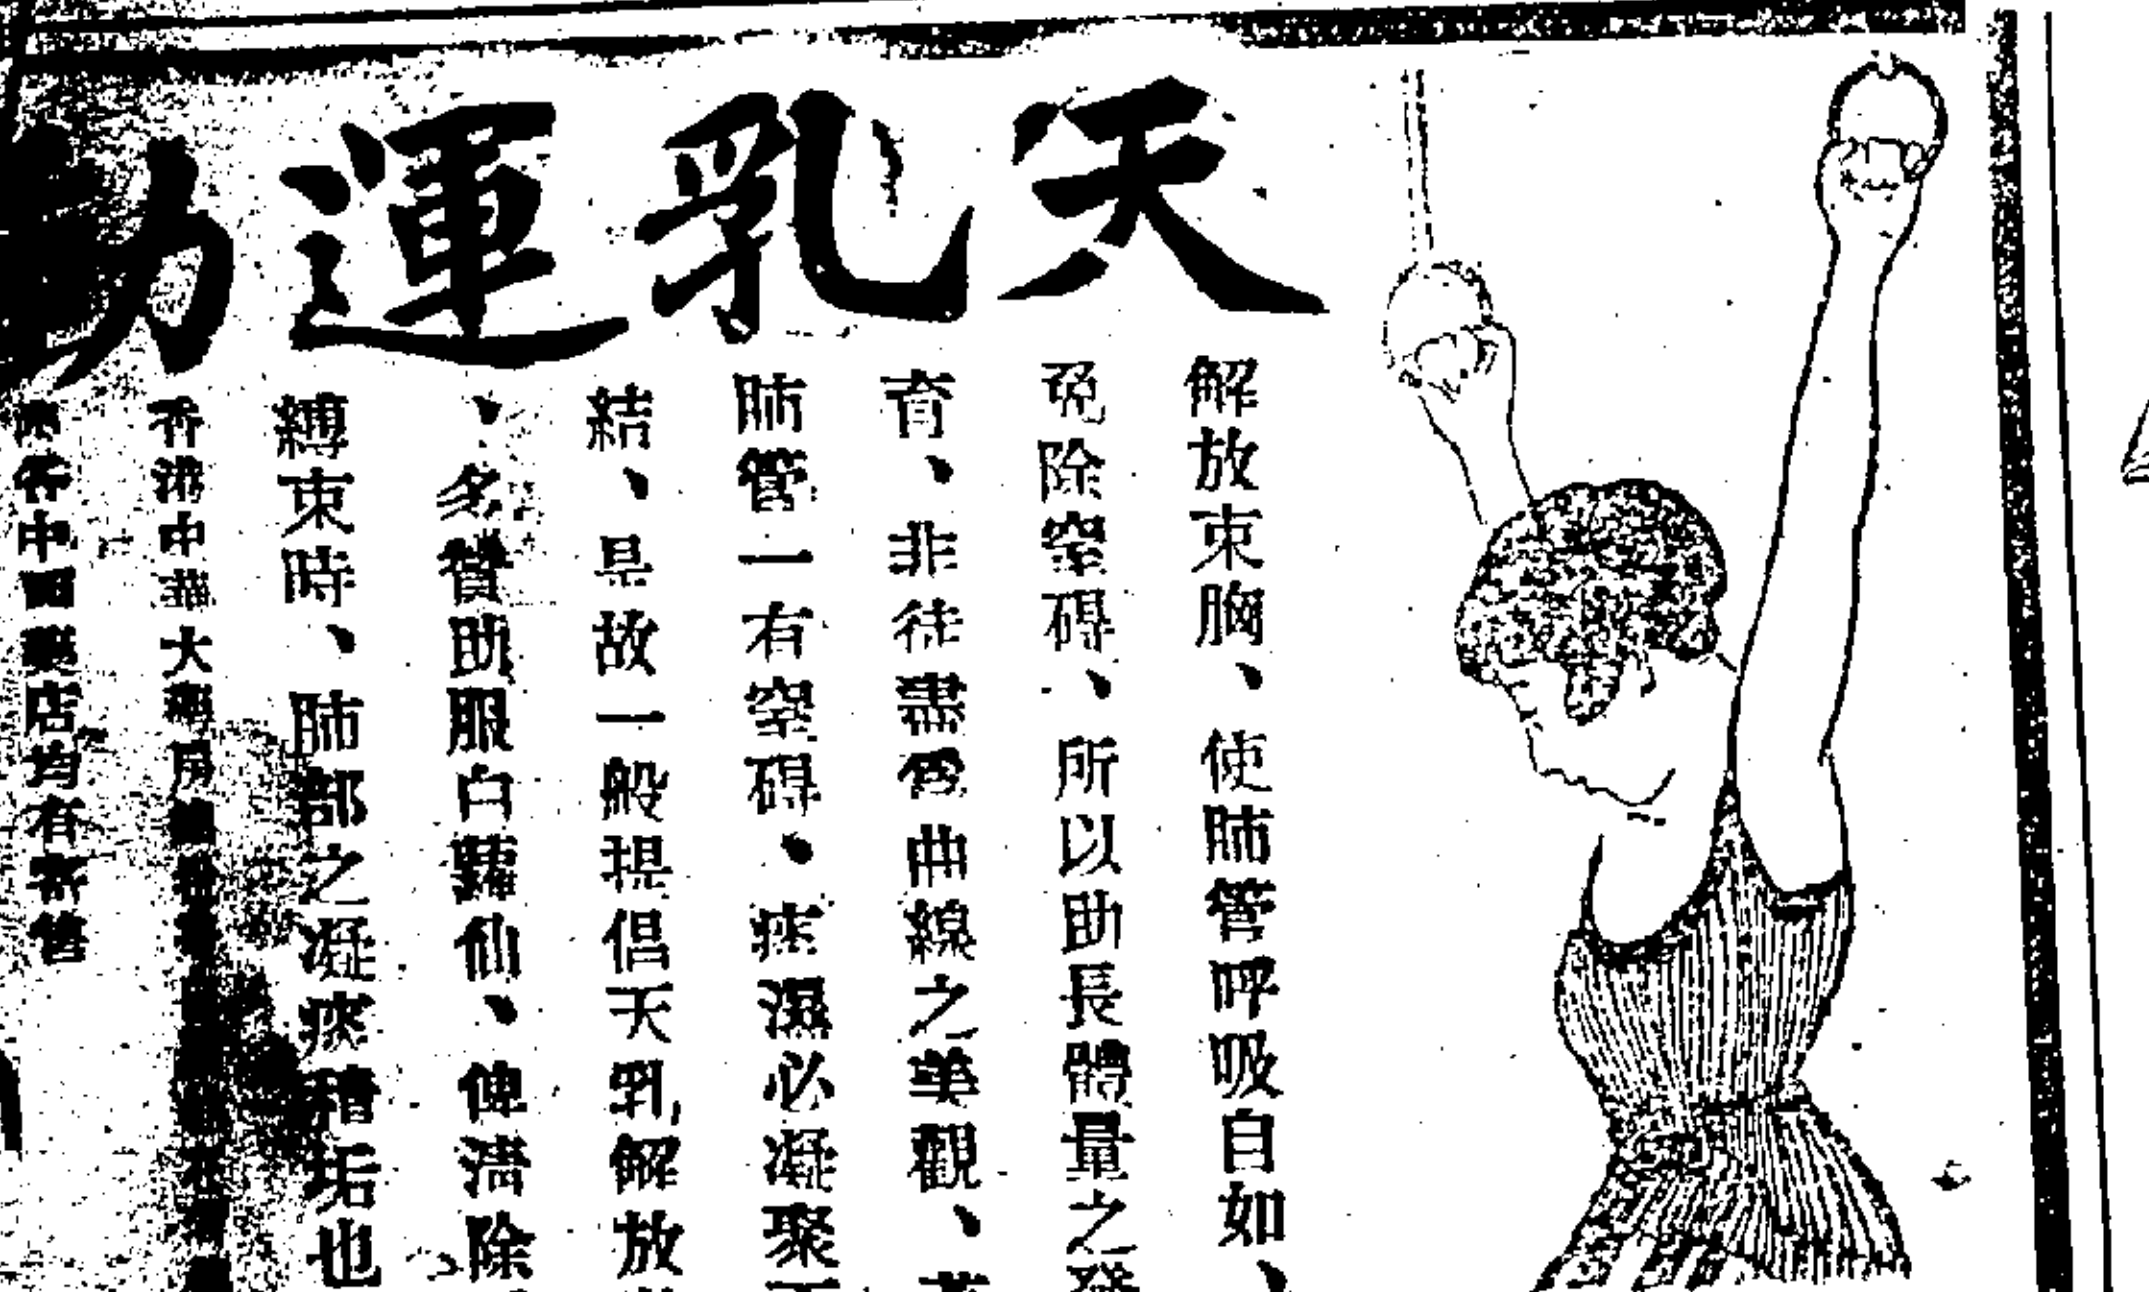 天乳運動
解放束胸、使肺管呼吸自如、
免除窒碍、所以助長體量之發
育、非徒盡為曲線之美觀、若
肺管一有窒碍、痰濕必凝聚
結、是故一般提倡天乳解放
、多贊助服白鳳仙、俾清除
縛束時、肺部之凝痰積垢也
香港中華大藥房
各中西藥店均有寄售